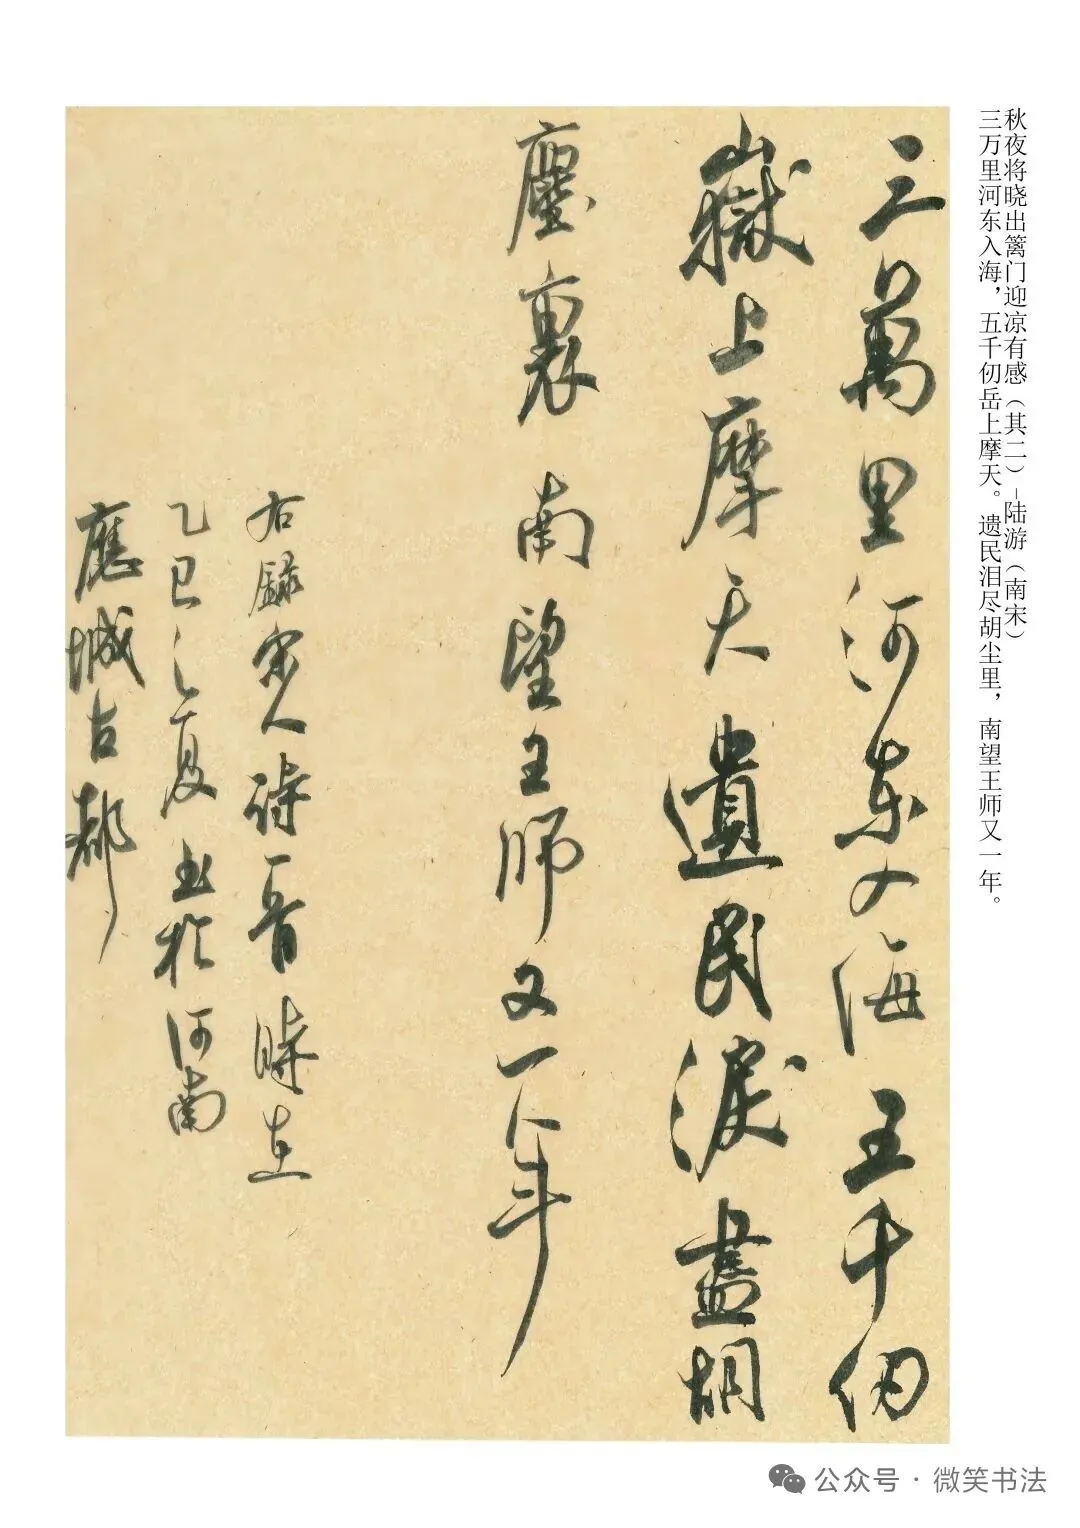 秋夜将晓出篱门迎凉有感（其二）–陆游（南宋）
三万里河东入海，五千仞岳上摩天。遗民泪尽胡尘里，南望王师又一年。
三萬里河東入海五千仞
嶽上摩天遺民淚盡胡
塵裏南望王師又一年
右錄宋人詩一首時在
乙巳之夏書於河南
應城古都
公众号·微笑书法